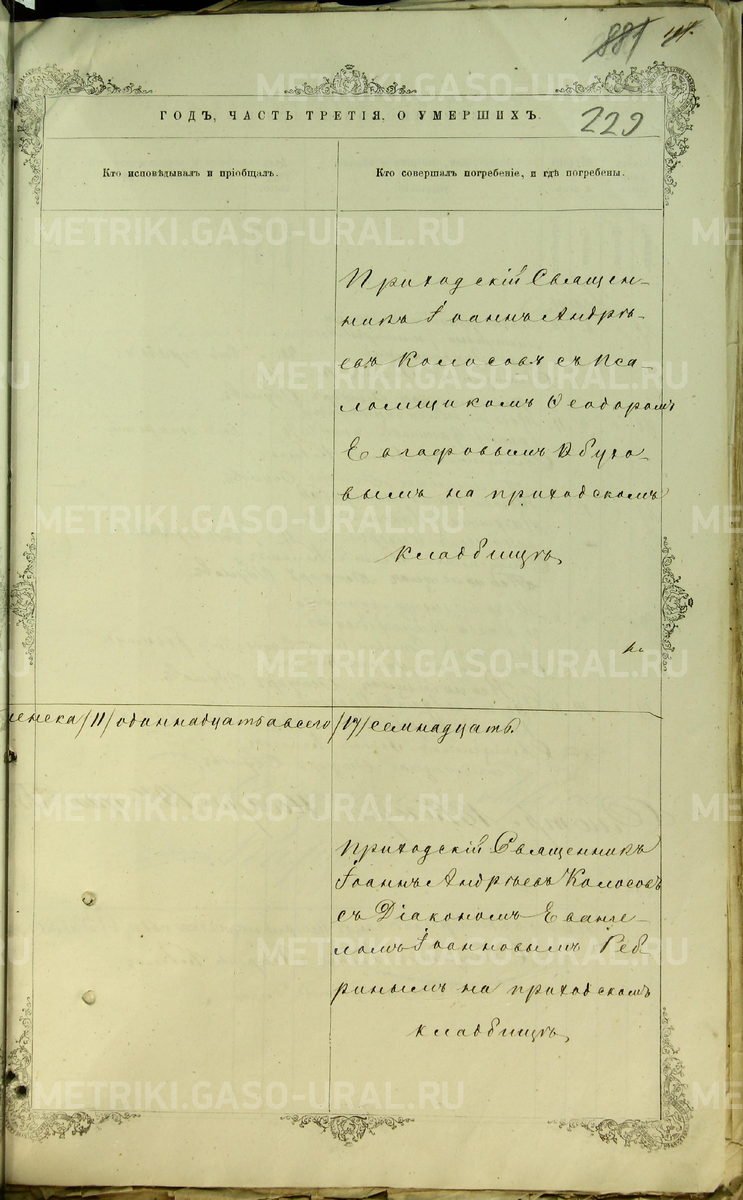 881
229
ГОДЪ, ЧАСТЬ ТРЕТІЯ, О УМЕРШИХЪ.
Кто исповѣдывалъ и пріобщалъ.
Кто совершалъ погребеніе, и гдѣ погребены.
Приходскій Священ-
никъ Іоаннъ Андрѣ-
евъ Колосовъ съ Пса-
ломщикомъ Ѳеодоромъ
Евграфовымъ Обухо-
вымъ на приходскомъ
кладбищѣ
женска /11/ одиннадцать а всего /17/ семнадцать.
Приходскій Священникъ
Іоаннъ Андрѣевъ Колосовъ
съ Діакономъ Еванге-
ломъ Іоанновымъ Реб-
ринымъ на приходскомъ
кладбищѣ
METRIKI.GASO-URAL.RU